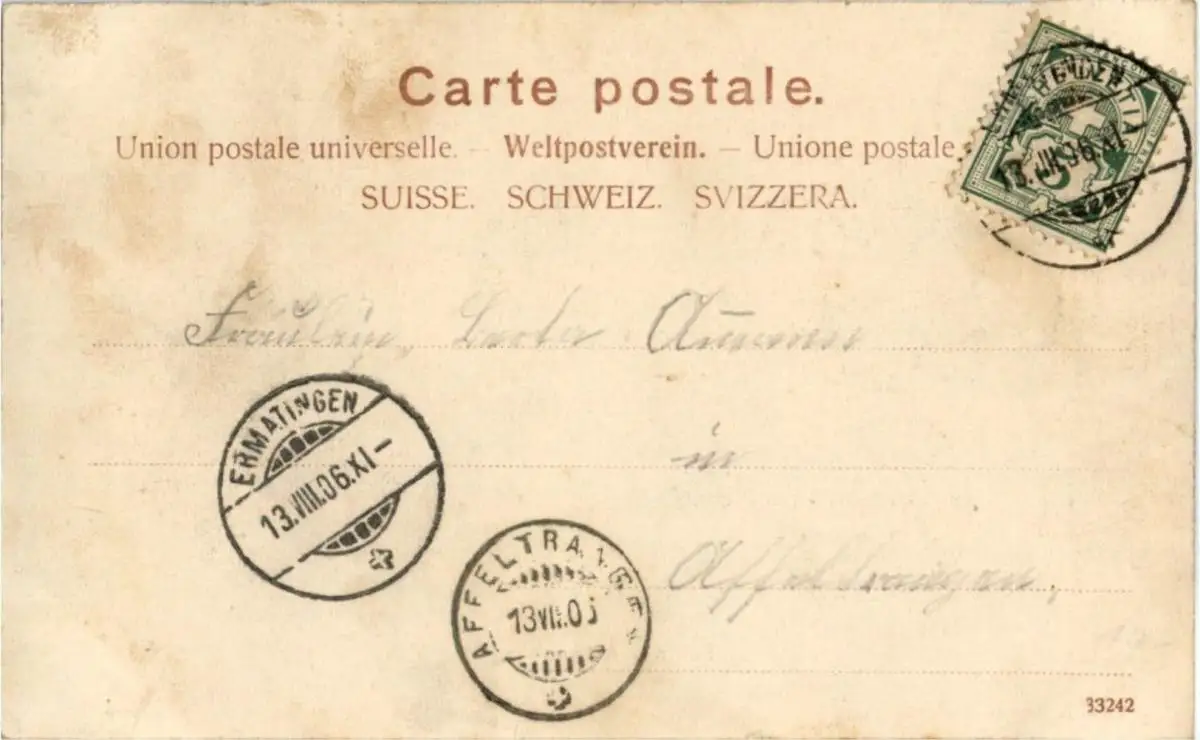 Carte postale.
Union postale universelle. — Weltpostverein. — Unione postale
SUISSE. SCHWEIZ. SVIZZERA.
13.VIII.06.XI
5
Fräulein
in
Affeltrangen.
ERMATINGEN
13.VIII.06.XI–
AFFELTRANGEN
33242